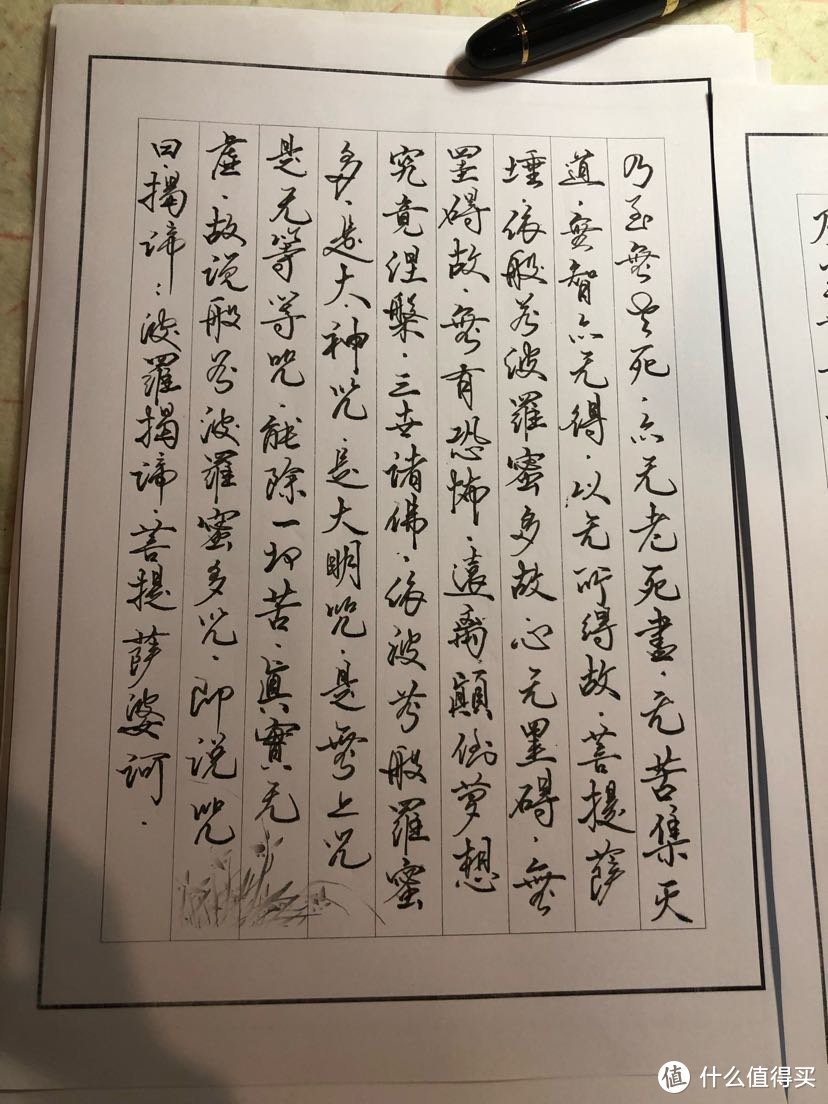 乃至無老死·亦无老死盡·无苦集灭
道·無智亦无得·以无所得故·菩提薩
埵·依般若波羅蜜多故心无罣碍·無
罣碍故·無有恐怖·遠離顛倒夢想
究竟涅槃·三世诸佛·依波若般羅蜜
多·是大·神咒·是大明咒·是無上咒
是无等等咒·能除一切苦·眞實无
虚·故说般若波羅蜜多咒·即说咒
曰·揭谛：波羅揭谛·菩提薩婆诃·
值 什么值得买